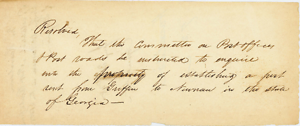 Resolved
That the Committee on Post offices
& Post roads be instructed to enquire
into the propriety of establishing a post
rout from Griffin to Newnan in the state
of Georgia —